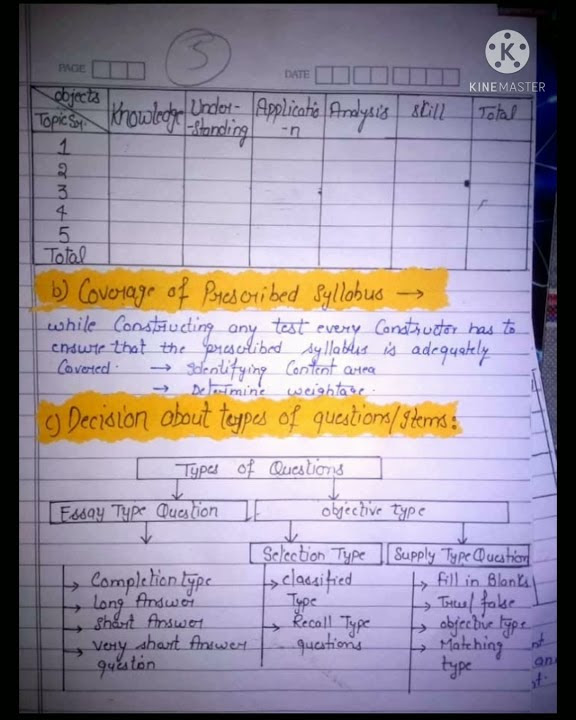 PAGE
5
DATE
KINEMASTER
Objects
Topic Sr.
Knowledge
Under-
-standing
Applicatio
-n
Analysis
Skill
Total
1
2
3
4
5
Total
b) Coverage of Prescribed Syllabus →
while Constructing any test every Constructor has to
ensure that the prescribed syllabus is adequately
Covered. → Identifying Content area
→ Determine weightage.
c) Decision about types of questions/Items:
Types of Questions
Essay Type Question
objective type
Selection Type
Supply Type Question
→ Completion type
→ Long Answer
→ Short Answer
→ very short Answer
question
→ classified
Type
→ Recall Type
questions
→ Fill in Blanks
→ True/false
→ objective type
→ Matching
type